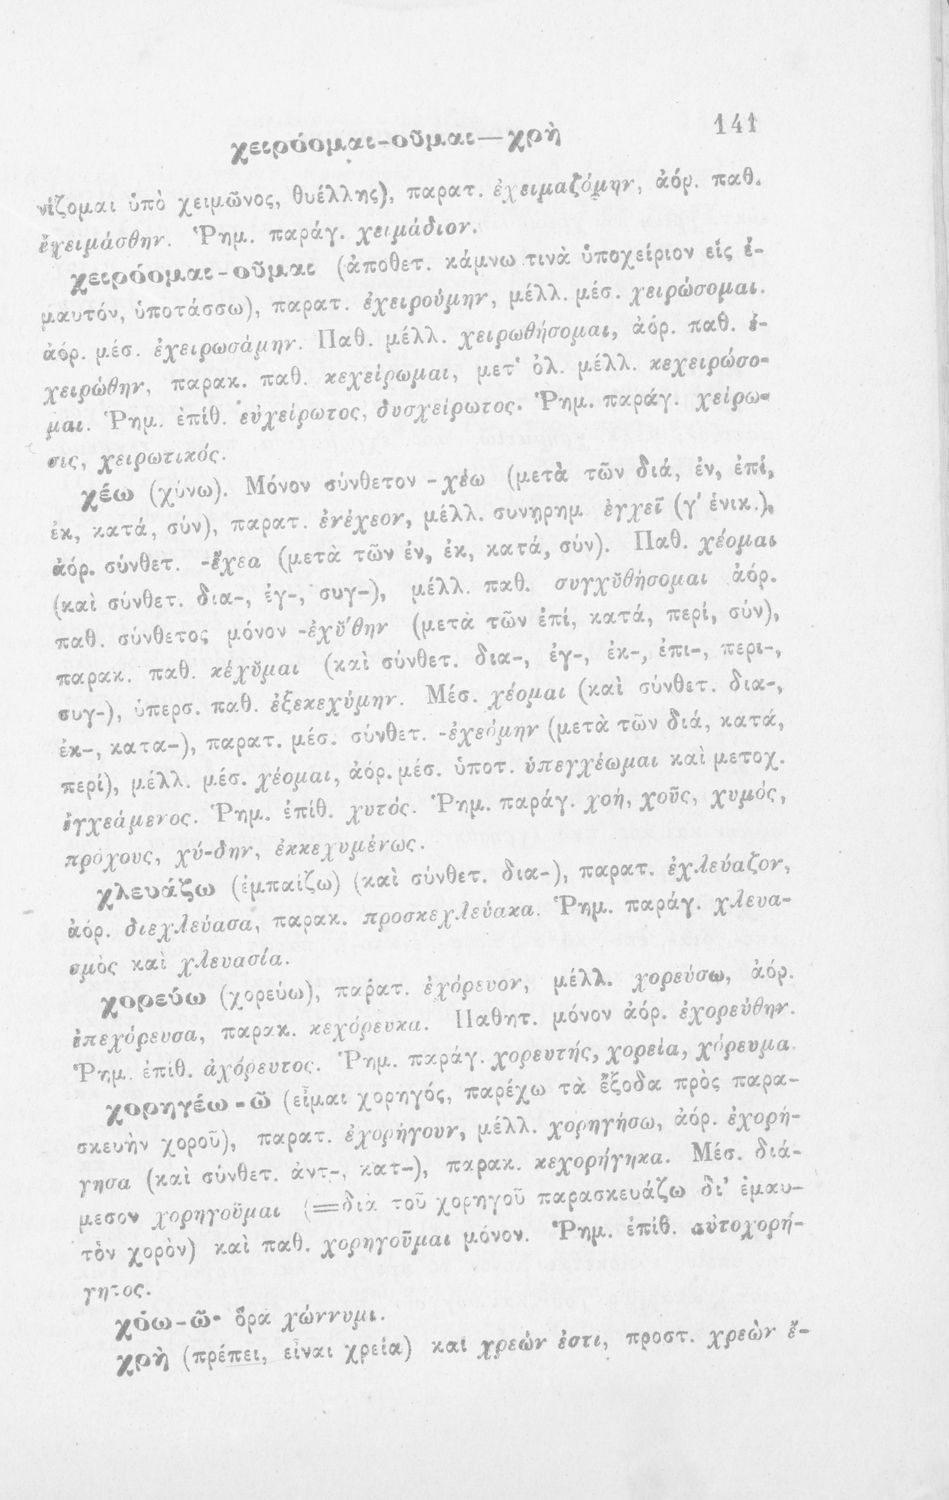 χειρόομαι-οῦμαι—χρὴ 141
νίζομαι ὑπὸ χειμῶνος, θυέλλης), παρατ. ἐχειμαζόμην, ἀόρ. παθ.
ἐχειμάσθην. Ῥημ. παράγ. χειμάδιον.
χειρόομαι-οῦμαι (ἀποθετ. κάμνω τινὰ ὑποχείριον εἰς ἐ-
μαυτόν, ὑποτάσσω), παρατ. ἐχειρούμην, μέλλ. μέσ. χειρώσομαι.
ἀόρ. μέσ. ἐχειρωσάμην. Παθ. μέλλ. χειρωθήσομαι, ἀόρ. παθ. ἐ-
χειρώθην, παρακ. παθ. κεχείρωμαι, μετ' ὀλ. μέλλ. κεχειρώσο-
μαι. Ῥημ. ἐπίθ. εὐχείρωτος, δυσχείρωτος. Ῥημ. παράγ. χείρω-
σις, χειρωτικός.
χέω (χύνω). Μόνον σύνθετον -χέω (μετὰ τῶν διά, ἐν, ἐπί,
ἐκ, κατά, σύν), παρατ. ἐνέχεον, μέλλ. συνῃρημ ἐγχεῖ (γ' ἑνικ.),
ἀόρ. σύνθετ. -ἔχεα (μετὰ τῶν ἐν, ἐκ, κατά, σύν). Παθ. χέομαι
(καὶ σύνθετ. δια-, ἐγ-, συγ-), μέλλ. παθ. συγχῠθήσομαι ἀόρ.
παθ. σύνθετος μόνον -ἐχῠ́θην (μετὰ τῶν ἐπί, κατά, περί, σύν),
παρακ. παθ. κέχῠμαι (καὶ σύνθετ. δια-, ἐγ-, ἐκ-, ἐπι-, περι-,
συγ-), ὑπερσ. παθ. ἐξεκεχύμην. Μέσ. χέομαι (καὶ σύνθετ. δια-,
ἐκ-, κατα-), παρατ. μέσ. σύνθετ. -ἐχεόμην (μετὰ τῶν διά, κατά,
περί), μέλλ. μέσ. χέομαι, ἀόρ. μέσ. ὑποτ. ὑπεγχέωμαι καὶ μετοχ.
ἐγχεάμενος. Ῥημ. ἐπίθ. χυτός. Ῥημ. παράγ. χοή, χοῦς, χυμός,
πρόχους, χύ-δην, ἐκκεχυμένως.
χλευάζω (ἐμπαίζω) (καὶ σύνθετ. δια-), παρατ. ἐχλεύαζον,
ἀόρ. διεχλεύασα, παρακ. προσκεχλεύακα. Ῥημ. παράγ. χλευα-
σμὸς καὶ χλευασία.
χορεύω (χορεύω), παρατ. ἐχόρευον, μέλλ. χορεύσω, ἀόρ.
ἐπεχόρευσα, παρακ. κεχόρευκα. Παθητ. μόνον ἀόρ. ἐχορεύθην.
Ῥημ. ἐπίθ. ἀχόρευτος. Ῥημ. παράγ. χορευτής, χορεία, χόρευμα.
χορηγέω-ῶ (εἶμαι χορηγός, παρέχω τὰ ἔξοδα πρὸς παρα-
σκευὴν χοροῦ), παρατ. ἐχορήγουν, μέλλ. χορηγήσω, ἀόρ. ἐχορή-
γησα (καὶ σύνθετ. ἀντ-, κατ-), παρακ. κεχορήγηκα. Μέσ. διά-
μεσον χορηγοῦμαι (=διὰ τοῦ χορηγοῦ παρασκευάζω δι' ἐμαυ-
τὸν χορὸν) καὶ παθ. χορηγοῦμαι μόνον. Ῥημ. ἐπίθ. αὐτοχορή-
γητος.
χόω-ῶ· ὅρα χώννυμι.
χρὴ (πρέπει, εἶναι χρεία) καὶ χρεών ἐστι, προστ. χρεὼν ἔ-